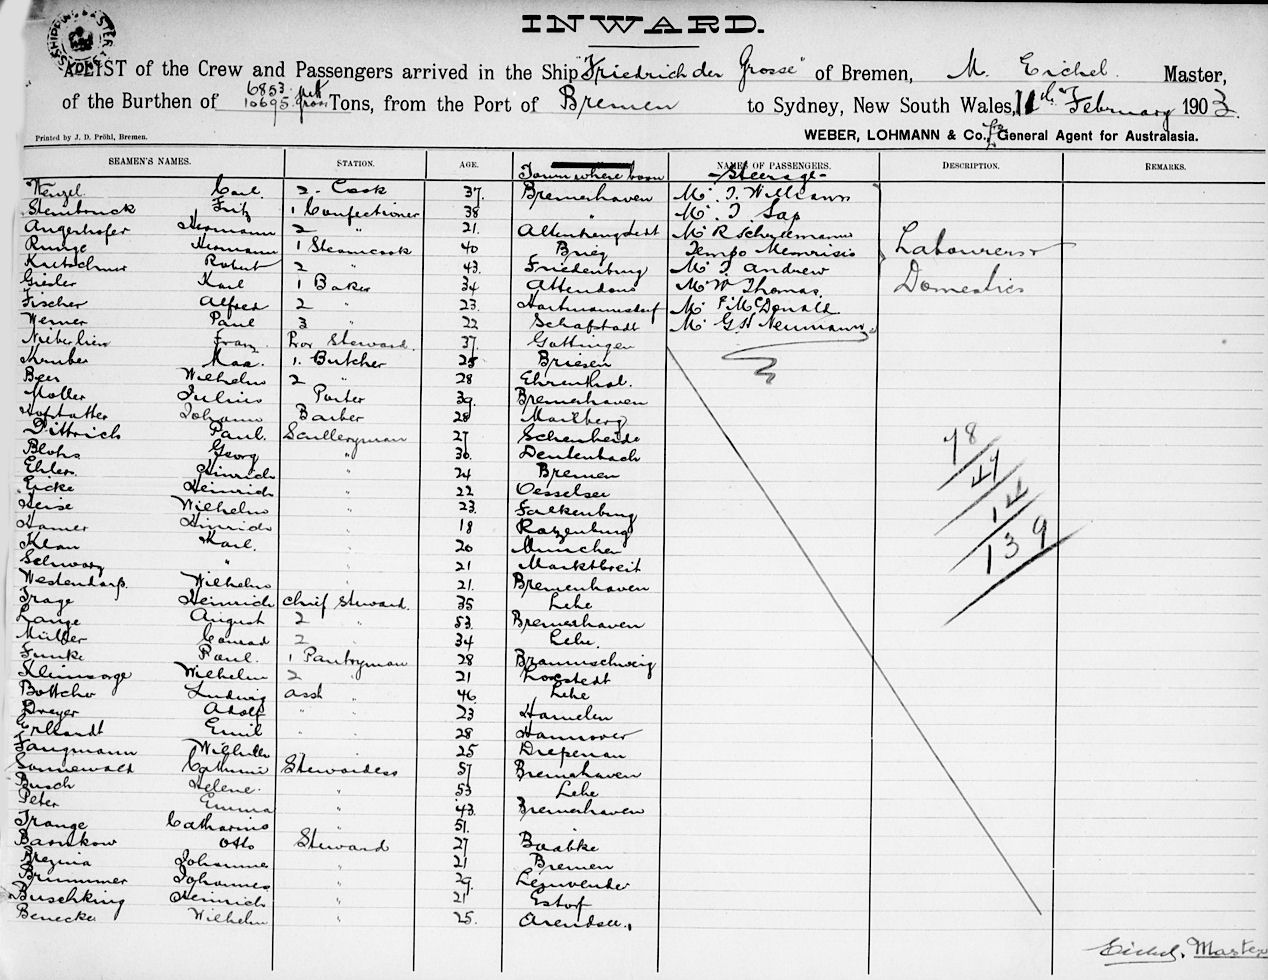 INWARD.
A LIST of the Crew and Passengers arrived in the Ship "Friedrich der Grosse" of Bremen, M. Eichel Master,
of the Burthen of 6853 nett 10695 gross Tons, from the Port of Bremen to Sydney, New South Wales, 11th February 1903.
Printed by J. D. Pröhl, Bremen.
WEBER, LOHMANN & Co. for General Agent for Australasia.
SEAMEN'S NAMES. STATION. AGE. Town where born NAMES OF PASSENGERS. DESCRIPTION. REMARKS.
-Steerage-
Wenzel Carl 2. Cook 37. Bremerhaven Mr. J. Williams
Steinbruck Fritz 1 Confectioner 38 " Mr J Sap
Angerhofer Hermann 2 " 21. Mr R
Runge Hermann 1 Steamcook 40 Brieg Tempo
Kretschmer Robert 2 " 43. Friedenburg Mr J Andrew
Giesler Karl 1 Baker 34 Attendorn Mr W Thomas
Fischer Alfred 2 " 23. Hartmannsdorf Mr F McDonald
Werner Paul 3 " 22 Schafstadt Mr G H Neumann
Labourers
Domestics
Franz Steward. 37. Gottingen
Max 1. Butcher 25 Briesen
Beer Wilhelm 2 " 28 Ehrenthal.
Moller Julius Porter 39. Bremerhaven
Hofstatter Johann Barber 28 Marlberg
Dittrich Paul. Sculleryman 27 Schenheide
Blohs Georg " 30. Dentenbach
Ehlers Hinrich " 24 Bremen
Eicke Heinrich " 22 Oesselse
Heise Wilhelm " 23. Falkenburg
Hamer Hinrich " 18 Razenburg
Klan Karl. " 20 Munchen
Schwarz " " 21 Marktbreit
Westendorp. Wilhelm " 21. Bremerhaven
Trage Heinrich Chief Steward. 35 Lehe
Lange August 2 " 53. Bremerhaven
Müller Conrad 2 " 34 Lehe.
Funke Paul. 1 Pantryman 28 Braunschweig
Kleinsorge Wilhelm 2 " 21 Loxstedt
Bottcher Ludwig asst " 46. Lehe
Dreyer Adolf " " 23 Hameln
Erhardt Emil " " 28 Hannover
Fangmann Wilhelm " " 25 Drepenau
Sonnewald Cathrine Stewardess 57 Bremerhaven
Busch Helene. " 53 Lehe
Peter Emma " 43. Bremerhaven
Trange Catharine " 51. "
Barnkow Otto Steward 27 Baabke
Brezina Johannes " 21 Bremen
Brummer Johannes " 29.
Buschking Heinrich " 21 Estorf
Benecke Wilhelm " 25. Arendsee.
78
47
14
139
Eichel, Master